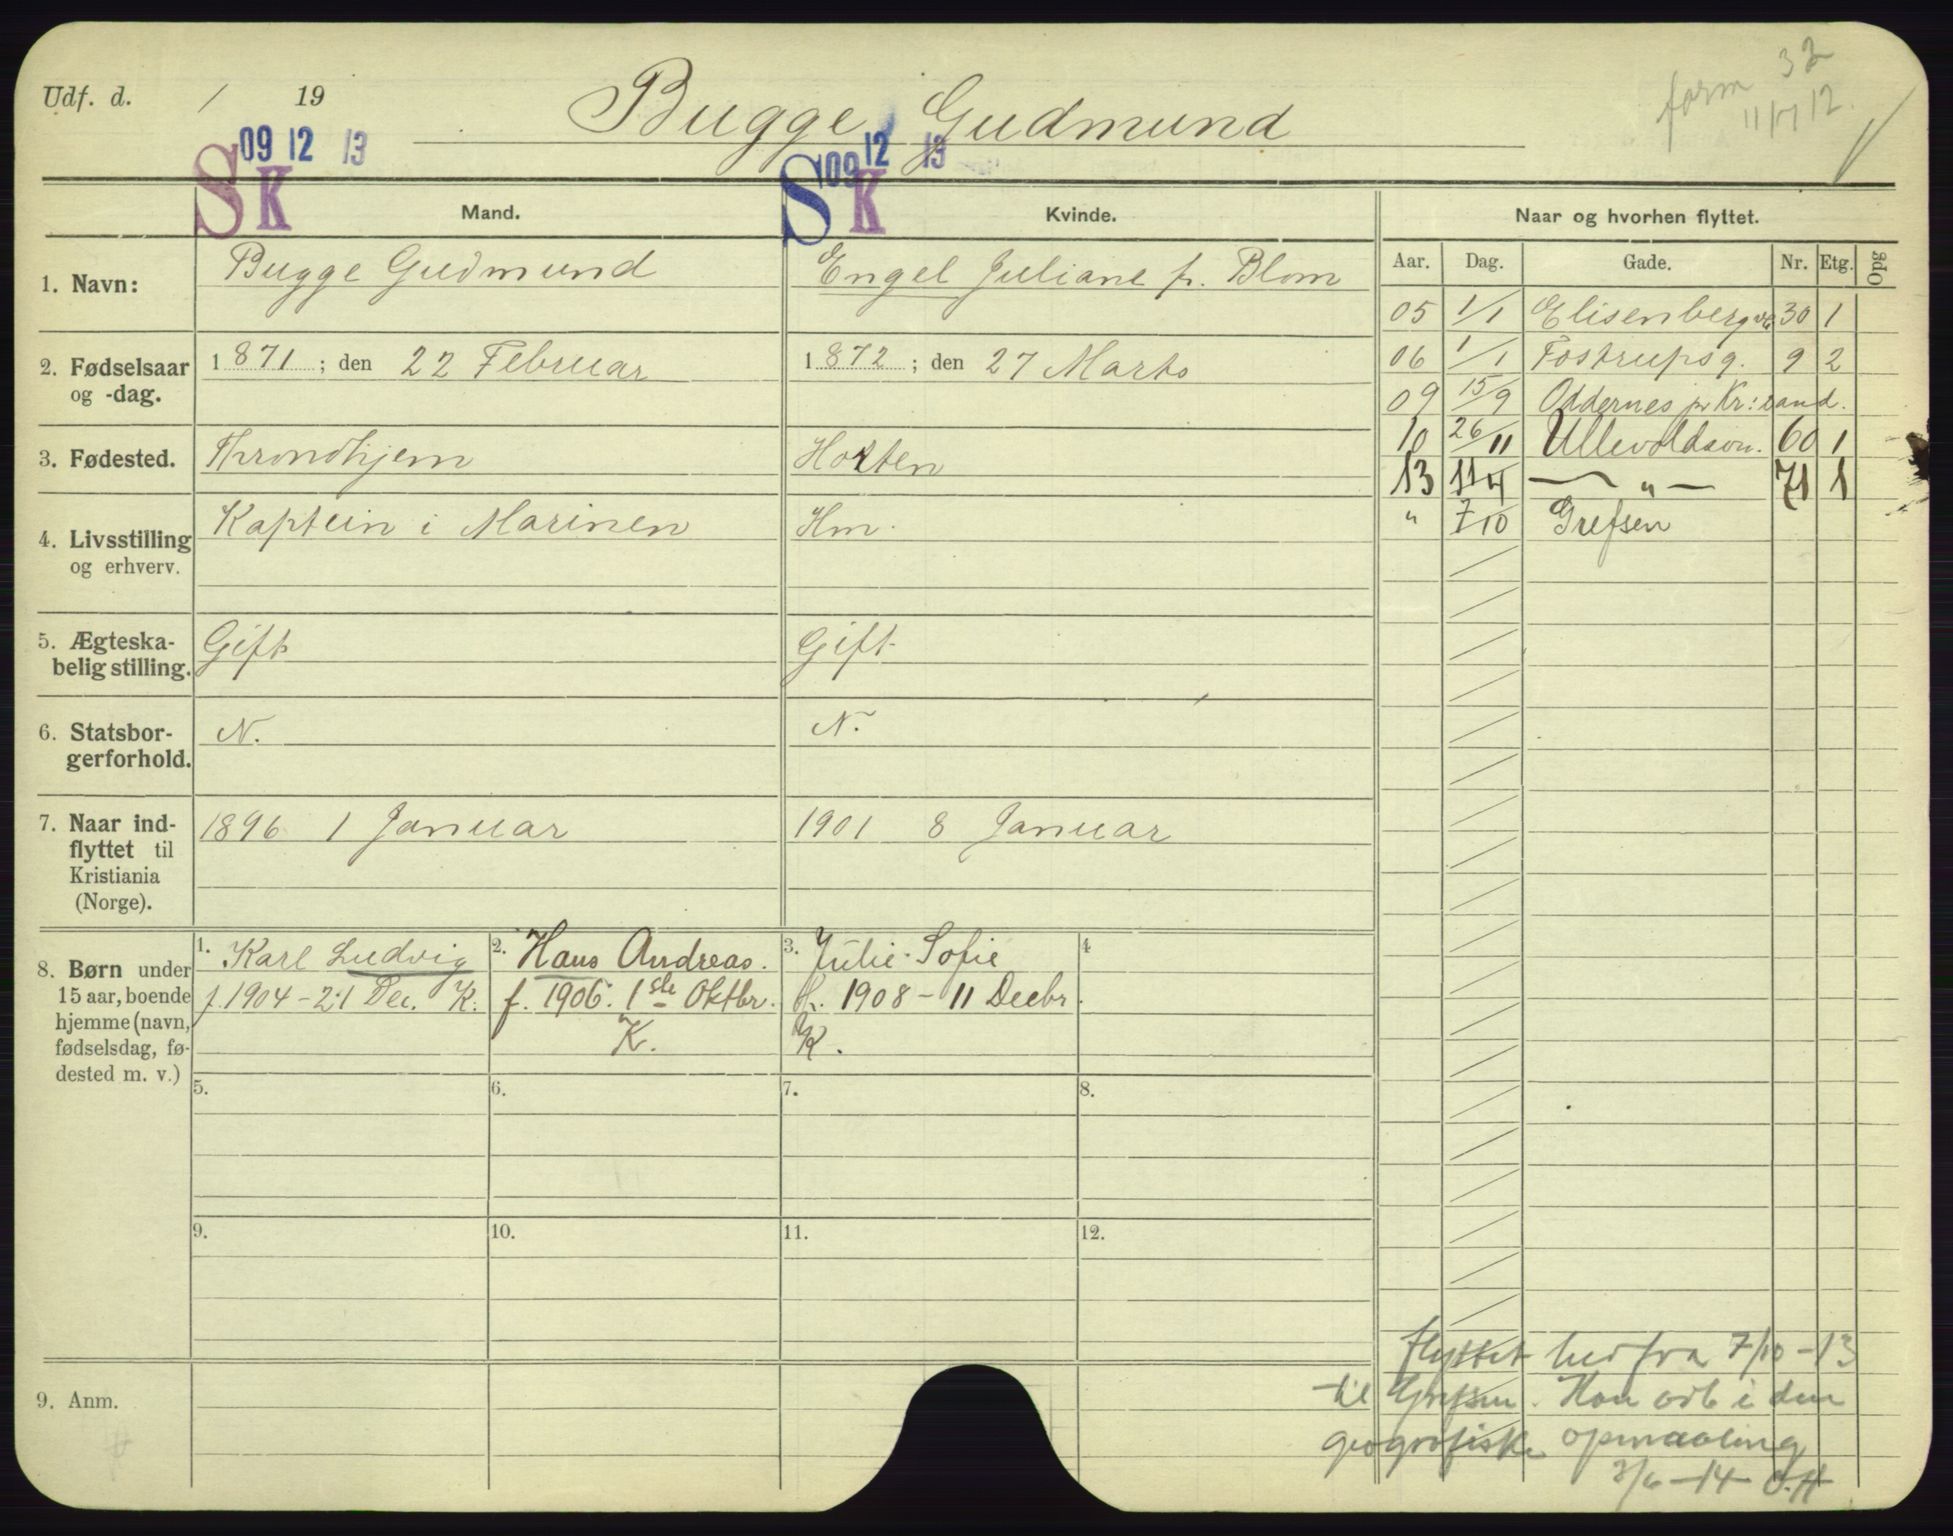 Udf. d. / 19
Bugge Gudmund
form 32
11/7 12.
S K 09 12 13
S K 09 12 13
Mand.
Kvinde.
Naar og hvorhen flyttet.
Aar. Dag. Gade. Nr. Etg. Opg
1. Navn: Bugge Gudmund
Engel Juliane f. Blom
2. Fødselsaar og -dag. 1871; den 22 Februar
1872; den 27 Marts
3. Fødested. Throndhjem
Horten
4. Livsstilling og erhverv. Kaptein i Marinen
Hm.
5. Ægteska-
belig stilling. Gift
Gift
6. Statsbor-
gerforhold. N.
N.
7. Naar ind-
flyttet til
Kristiania
(Norge). 1896 1 Januar
1901 8 Januar
8. Børn under
15 aar, boende
hjemme (navn,
fødselsdag, fø-
dested m. v.)
1. Karl Ludvig
f. 1904 - 21 Dec. K.
2. Hans Andreas.
f. 1906. 1ste Oktbr.
K.
3. Julie Sofie
f. 1908 - 11 Decbr.
K.
4
5.
6.
7.
8.
9.
10.
11.
12.
9. Anm.
05 1/1 Elisenbergv. 30 1
06 1/1 Fostrupsg. 9 2
09 15/9 Oddernes pr Kr:sand.
10 26/11 Ullevoldsvn. 60 1
13 11/4 — " — 71 1
" 7/10 Grefsen
flyttet herfra 7/10 - 13
til Grefsen. Han arb i den
geografiske opmaaling
3/6 - 14 O.H